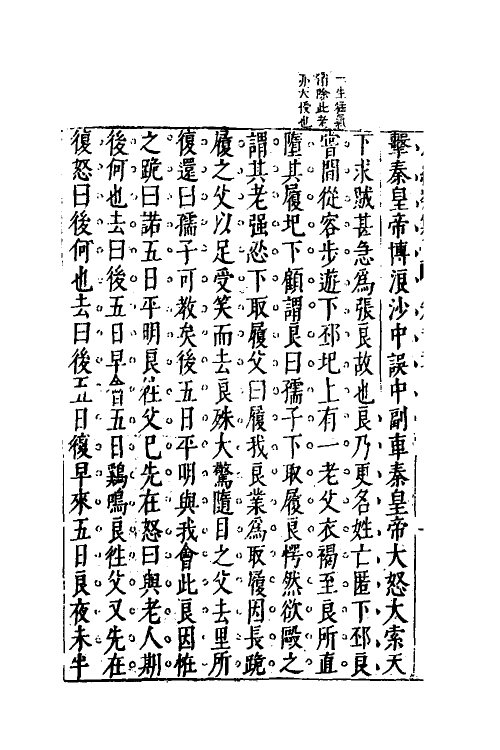 一生猛氣
消除此老
亦大優也
擊秦皇帝博浪沙中誤中副車秦皇帝大怒大索天
下求賊甚急爲張良故也良乃更名姓亡匿下邳良
嘗閒從容步遊下邳圯上有一老父衣褐至良所直
墮其履圯下顧謂良曰孺子下取履良愕然欲毆之
謂其老强忍下取履父曰履我良業爲取履因長跪
履之父以足受笑而去良殊大驚隨目之父去里所
復還曰孺子可教矣後五日平明與我會此良因恠
之跪曰諾五日平明良徃父已先在怒曰與老人期
後何也去曰後五日早會五日鷄鳴良徃父又先在
復怒曰後何也去曰後五日復早來五日良夜未半